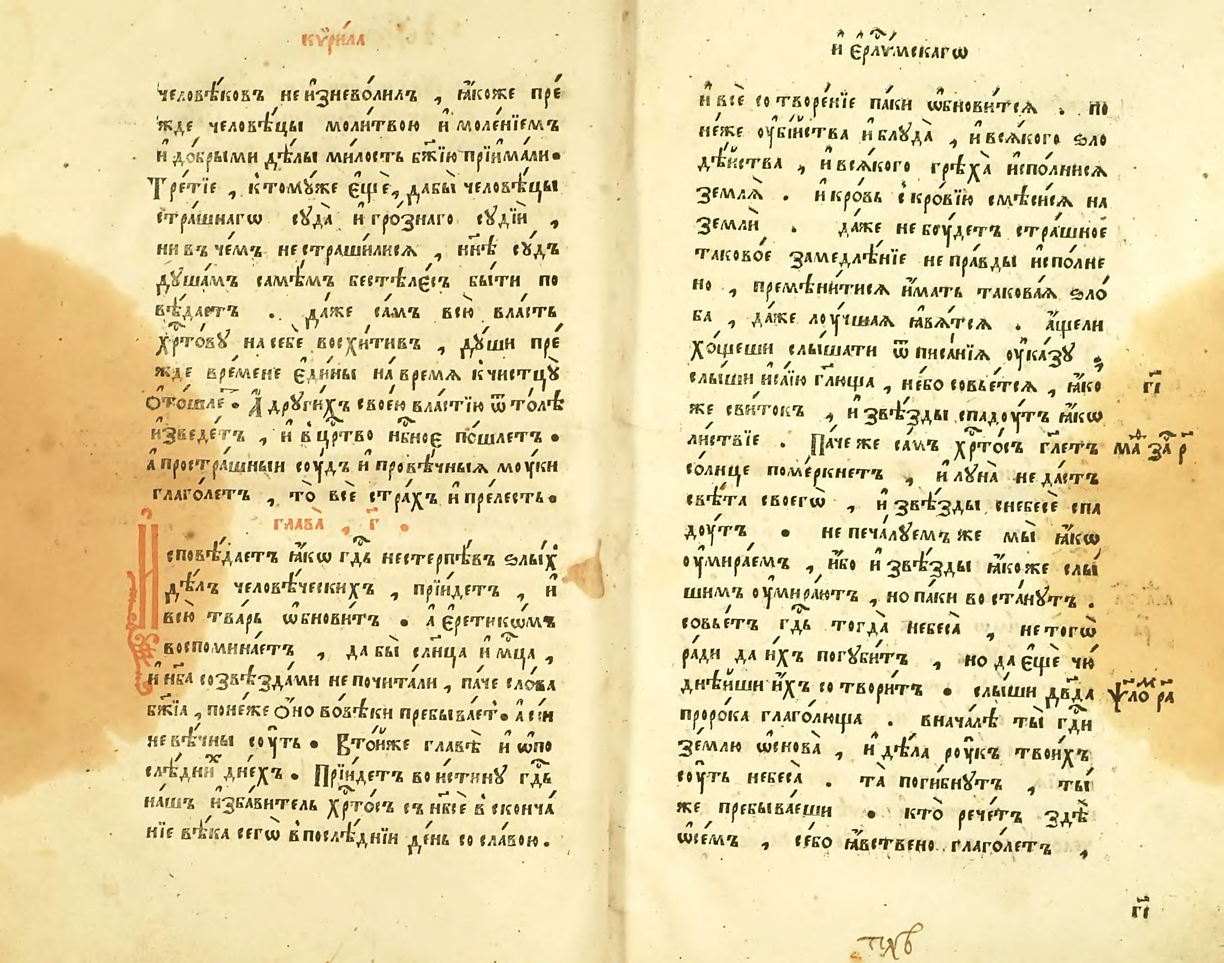 кѷри́ла
человѣ́ковъ не и҆зневолилъ , ꙗ҆́коже пре́
жде человѣ́цы моли́твою и҆ моле́нїемъ
и҆ до́брыми дѣ́лы ми́лость бж҃їю прїима́ли.
Тре́тїе , к томꙋ́же є҆щѐ, дабы̀ человѣ́цы
стра́шнагѡ сꙋда̀ и҆ гро́знаго сꙋдїѝ ,
ни в чѐмъ не страши́лися , нн҃ѣ сꙋ́дъ
дꙋша́мъ самѣ́мъ бестѣле́съ бы́ти по
вѣ́даетъ . да́же са́мъ всю̀ вла́сть
хрⷭ҇то́вꙋ на себѐ восхи́тивъ , дꙋ́ши пре́
жде времене є҆ди́ны на вре́мя к чистцꙋ̀
ѻ҆тошле́т. А҆ дрꙋги́хъ свое́ю вла́стїю ѿ то́лѣ
и҆зведе́тъ , и҆ в црⷭ҇тво нбⷭ҇ное по́шлетъ .
а҆ про стра́шныи соу́дъ и҆ про вѣ́чныѧ моу́ки
глаго́летъ , то̀ всѐ стра́хъ и҆ пре́лесть.
глава̀ , г҃ .
И҆сповѣ́даетъ ꙗ҆́кѡ гдⷭ҇ь не стерпѣ́въ ѕлы́х
дѣ́лъ человѣ́ческихъ , прїи́детъ , и҆
всю̀ тва́рь ѡ҆бнови́тъ . а҆ є҆ретикѡ́мъ
воспомина́етъ , да бы̀ слн҃ца и҆ мцⷭ҇а ,
и҆ нб҃а со звѣзда́ми не почита́ли , па́че сло́ва
бж҃їа , поне́же ѻ҆но во вѣ́ки пребыва́ет. а҆ сїи
не вѣ́чны соу́ть . Вто́йже главѣ̀ и҆ ѡ҆ по
слѣ́дних дне́хъ . Прїи́детъ во и́стинꙋ гдⷭ҇ь
на́шъ и҆зба́витель хрⷭ҇то́съ съ нб҃сѐ в сконча́
нїе вѣ́ка сегѡ̀ в послѣ́днїи де́нь со сла́вою .
и҆ є҆рлⷭ҇и́мскагѡ
и҆ всѐ сотворе́нїе па́ки ѡ҆бнови́тсѧ . по
не́же оу҆бі́йства и҆ блꙋда̀ , и҆ всѧ́кого ѕло
дѣ́йства , и҆ всѧ́кого грѣха̀ и҆спо́лнисѧ
землѧ̀ . и҆ кро́вь с кро́вїю смѣси́сѧ на
землѝ . да́же не боу́детъ стра́шное
таково́е замедлѣ́нїе непра́вды и҆спо́лне
но , премѣни́тисѧ и҆́мать такова́ѧ ѕло́
ба , да́же лоу́чшаѧ ꙗ҆вѧ́тсѧ . а҆́щели
хо́щеши слы́шати ѿ писа́нїѧ оу҆ка́зꙋ ,
слы́ши и҆са́їю гл҃юща , не́бо совье́тсѧ , ꙗ҆́ко
же сви́токъ , и҆ звѣ́зды спадоу́тъ ꙗ҆́кѡ
ли́ствїе . Па́че же са́мъ хрⷭ҇то́съ гл҃етъ
со́лнце поме́ркнетъ , и҆ лꙋна̀ не да́стъ
свѣ́та своегѡ̀ , и҆ звѣ́зды с небесѐ спа
доу́тъ . не печа́лꙋемъ же мы̀ ꙗ҆́кѡ
оу҆мира́емъ , и҆́бо и҆ звѣ́зды ꙗ҆́коже слы́
шимъ оу҆мира́ютъ , но па́ки воста́нꙋтъ .
совье́тъ гдⷭ҇ь тогда̀ небеса̀ , не тогѡ̀
ра́ди да и҆́хъ погꙋби́тъ , но да є҆щѐ чю́
днѣ́йши и҆́хъ сотвори́тъ . слы́ши дв҃да
проро́ка глаго́люща . в нача́лѣ ты̀ гдⷭ҇и
зе́млю ѡ҆снова̀ , и҆ дѣ́ла роу́къ твои́хъ
соу́ть небеса̀ . та̀ поги́бнутъ , ты́
же пребыва́еши . кто̀ рече́тъ здѣ̀
ѡ҆ се́мъ , се́бо ꙗ҆́вствено глаго́летъ ,
гі҃
ма зⷱ҇а р
ѱⷧ҇о ра
гі҃